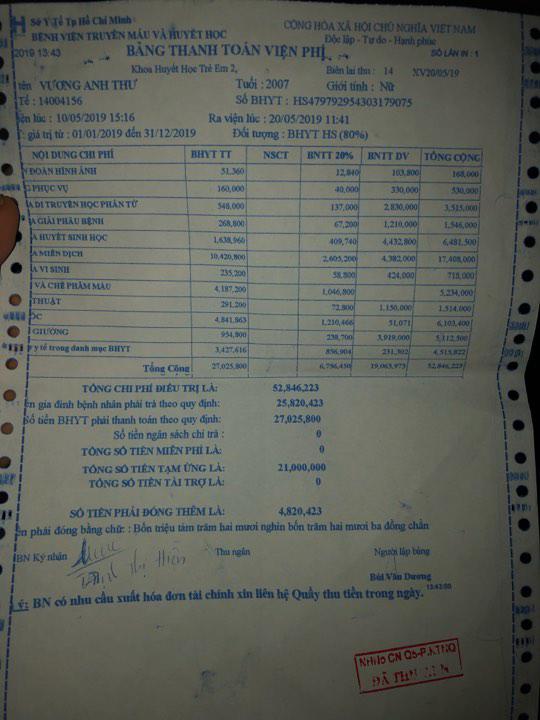 Sở Y Tế Tp Hồ Chí Minh
CỘNG HÒA XÃ HỘI CHỦ NGHĨA VIỆT NAM
BỆNH VIỆN TRUYỀN MÁU VÀ HUYẾT HỌC
Độc lập - Tự do - Hạnh phúc
2019 13:43
BẢNG THANH TOÁN VIỆN PHÍ
SỐ LẦN IN : 1
Khoa Huyết Học Trẻ Em 2,
Biên lai thu : 14 XV20/05/19
tên VƯƠNG ANH THƯ Tuổi : 2007 Giới tính : Nữ
Tế : 14004156 Số BHYT : HS4797929543031790​75
iện lúc : 10/05/2019 15:16 Ra viện lúc : 20/05/2019 11:41
giá trị từ : 01/01/2019 đến 31/12/2019 Đối tượng : BHYT HS (80%)
NỘI DUNG CHI PHÍ BHYT TT NSCT BNTT 20% BNTT DV TỔNG CỘNG
ĐOÁN HÌNH ẢNH 51,360 12,840 103,800 168,000
PHỤC VỤ 160,000 40,000 330,000 530,000
A DI TRUYỀN HỌC PHÂN TỬ 548,000 137,000 2,830,000 3,515,000
A GIẢI PHẪU BỆNH 268,800 67,200 1,210,000 1,546,000
A HUYẾT SINH HỌC 1,638,960 409,740 4,432,800 6,481,500
A MIỄN DỊCH 10,420,800 2,605,200 4,382,000 17,408,000
A VI SINH 235,200 58,800 424,000 718,000
VÀ CHẾ PHẨM MÁU 4,187,200 1,046,800 5,234,000
THUẬT 291,200 72,800 1,150,000 1,514,000
ỐC 4,841,863 1,210,466 51,071 6,103,400
GIƯỜNG 954,800 238,700 3,919,000 5,112,500
y tế trong danh mục BHYT 3,427,616 856,904 231,302 4,515,822
Tổng Cộng 27,025,800 6,756,450 19,063,973 52,846,223
TỔNG CHI PHÍ ĐIỀU TRỊ LÀ: 52,846,223
ền gia đình bệnh nhân phải trả theo quy định: 25,820,423
Số tiền BHYT phải thanh toán theo quy định: 27,025,800
Số tiền ngân sách chi trả : 0
TỔNG SỐ TIỀN MIỄN PHÍ LÀ: 0
TỔNG SỐ TIỀN TẠM ỨNG LÀ: 21,000,000
TỔNG SỐ TIỀN TÀI TRỢ LÀ: 0
SỐ TIỀN PHẢI ĐÓNG THÊM LÀ: 4,820,423
ền phải đóng bằng chữ: : Bốn triệu tám trăm hai mươi nghìn bốn trăm hai mươi ba đồng chẵn
BN Ký nhận Thu ngân Người lập bảng
Thị Hiền
Bùi Văn Dương
13:43:00
ý: BN có nhu cầu xuất hóa đơn tài chính xin liên hệ Quầy thu tiền trong ngày.
CN Q5-P.KTNQ
ĐÃ THU